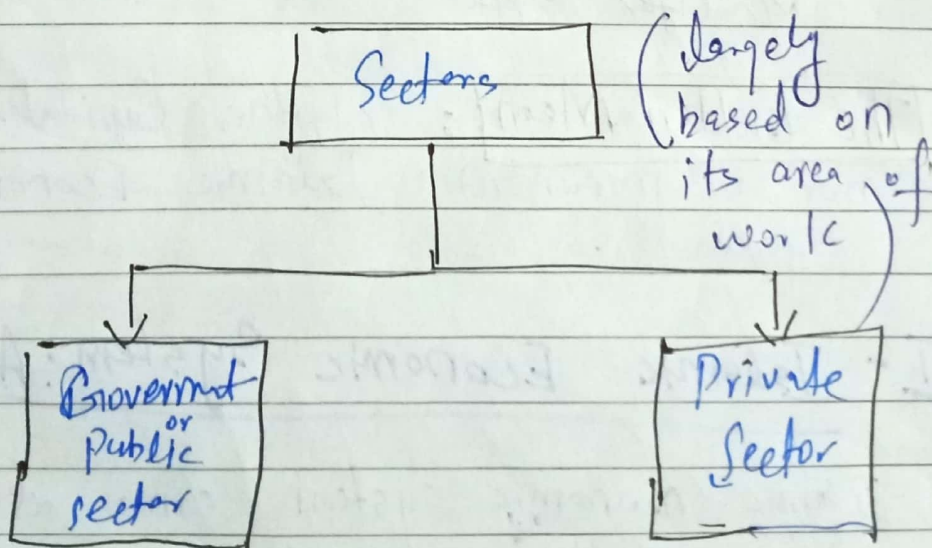 Sectors
(largely
based on
its area of
work)
Governmnt
or
public
sector
Private
Sector